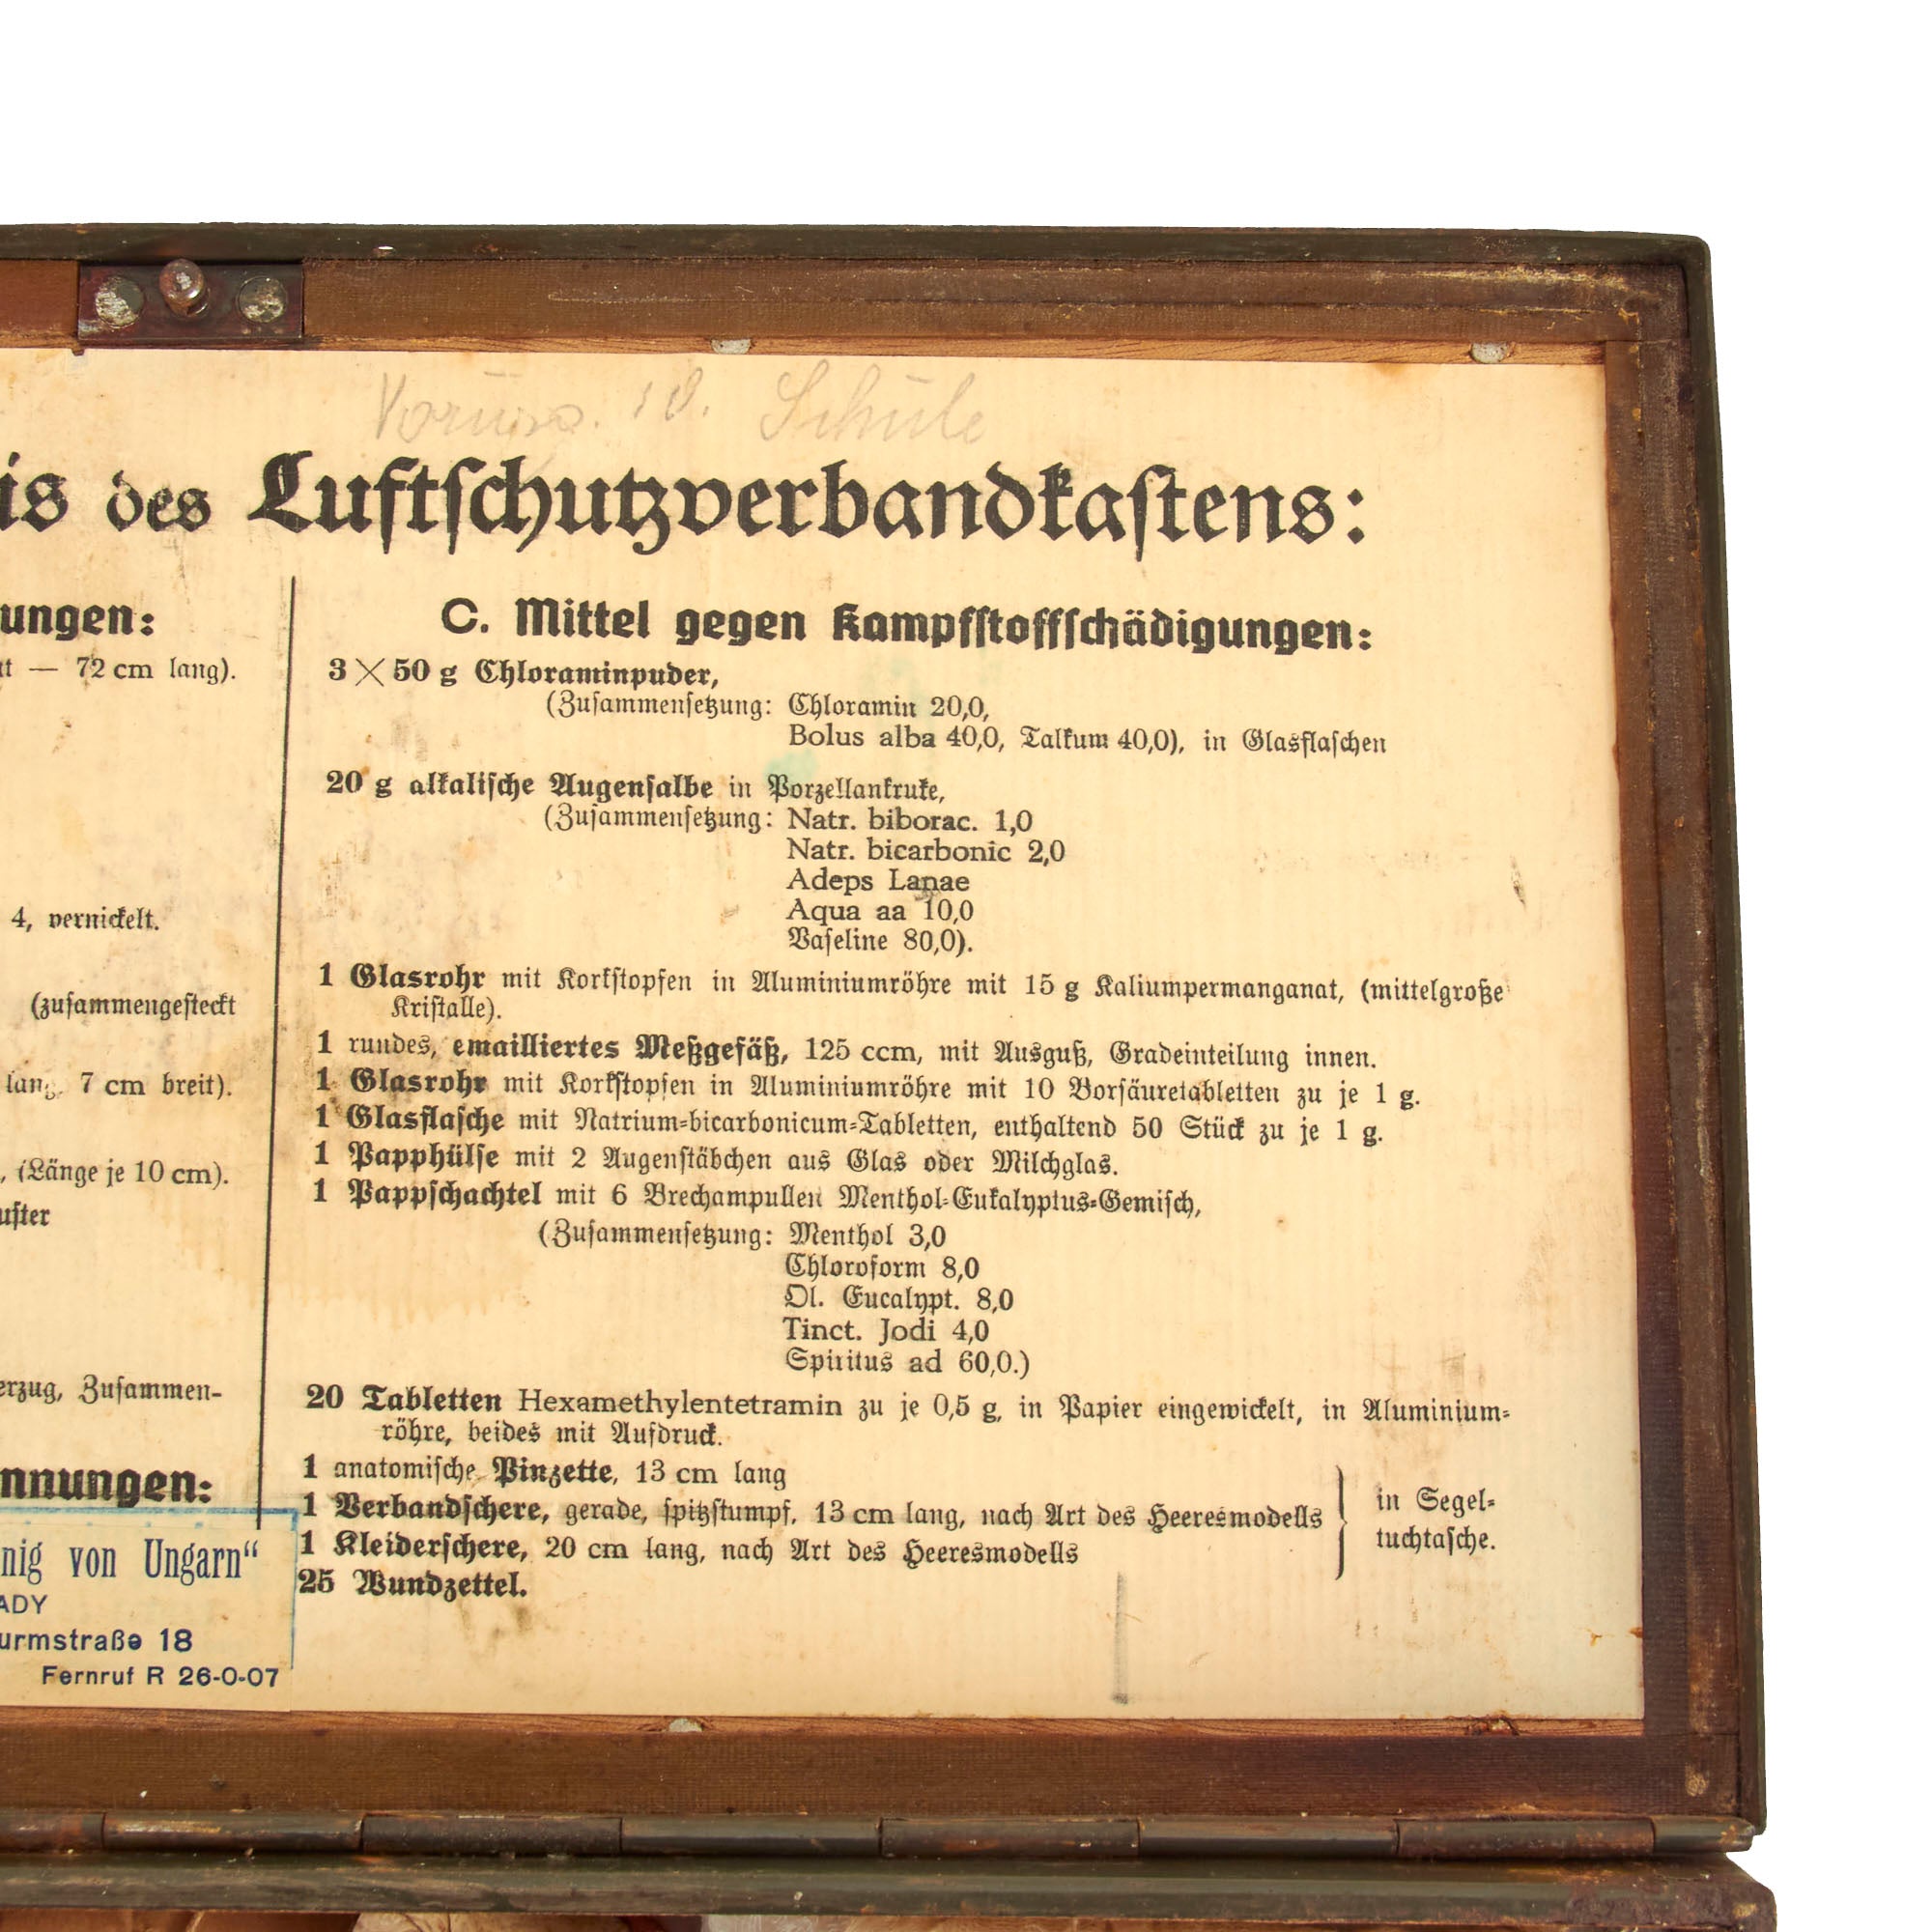 Schule
is des Luftschutzverbandkastens:
ungen:
— 72 cm lang).
4, vernickelt.
(zusammengesteckt
7 cm breit).
(Länge je 10 cm).
uster
erzug, Zusammen-
nnungen:
nig von Ungarn“
ADY
urmstraße 18
Fernruf R 26-0-07
C. Mittel gegen Kampfstoffschädigungen:
3 × 50 g Chloraminpuder,
(Zusammensetzung: Chloramin 20,0,
Bolus alba 40,0, Talkum 40,0), in Glasflaschen
20 g alkalische Augensalbe in Porzellankruke,
(Zusammensetzung: Natr. biborac. 1,0
Natr. bicarbonic 2,0
Adeps Lanae
Aqua aa 10,0
Vaseline 80,0).
1 Glasrohr mit Korkstopfen in Aluminiumröhre mit 15 g Kaliumpermanganat, (mittelgroße
Kristalle).
1 rundes, emailliertes Meßgefäß, 125 ccm, mit Ausguß, Gradeinteilung innen.
1 Glasrohr mit Korkstopfen in Aluminiumröhre mit 10 Borsäuretabletten zu je 1 g.
1 Glasflasche mit Natrium-bicarbonicum-Tabletten, enthaltend 50 Stück zu je 1 g.
1 Papphülse mit 2 Augenstäbchen aus Glas oder Milchglas.
1 Pappschachtel mit 6 Brechampullen Menthol-Eukalyptus-Gemisch,
(Zusammensetzung: Menthol 3,0
Chloroform 8,0
Ol. Eucalypt. 8,0
Tinct. Jodi 4,0
Spiritus ad 60,0.)
20 Tabletten Hexamethylentetramin zu je 0,5 g, in Papier eingewickelt, in Aluminium-
röhre, beides mit Aufdruck.
1 anatomische Pinzette, 13 cm lang
1 Verbandschere, gerade, spitzstumpf, 13 cm lang, nach Art des Heeresmodells
1 Kleiderschere, 20 cm lang, nach Art des Heeresmodells
in Segel-
tuchtasche.
25 Wundzettel.